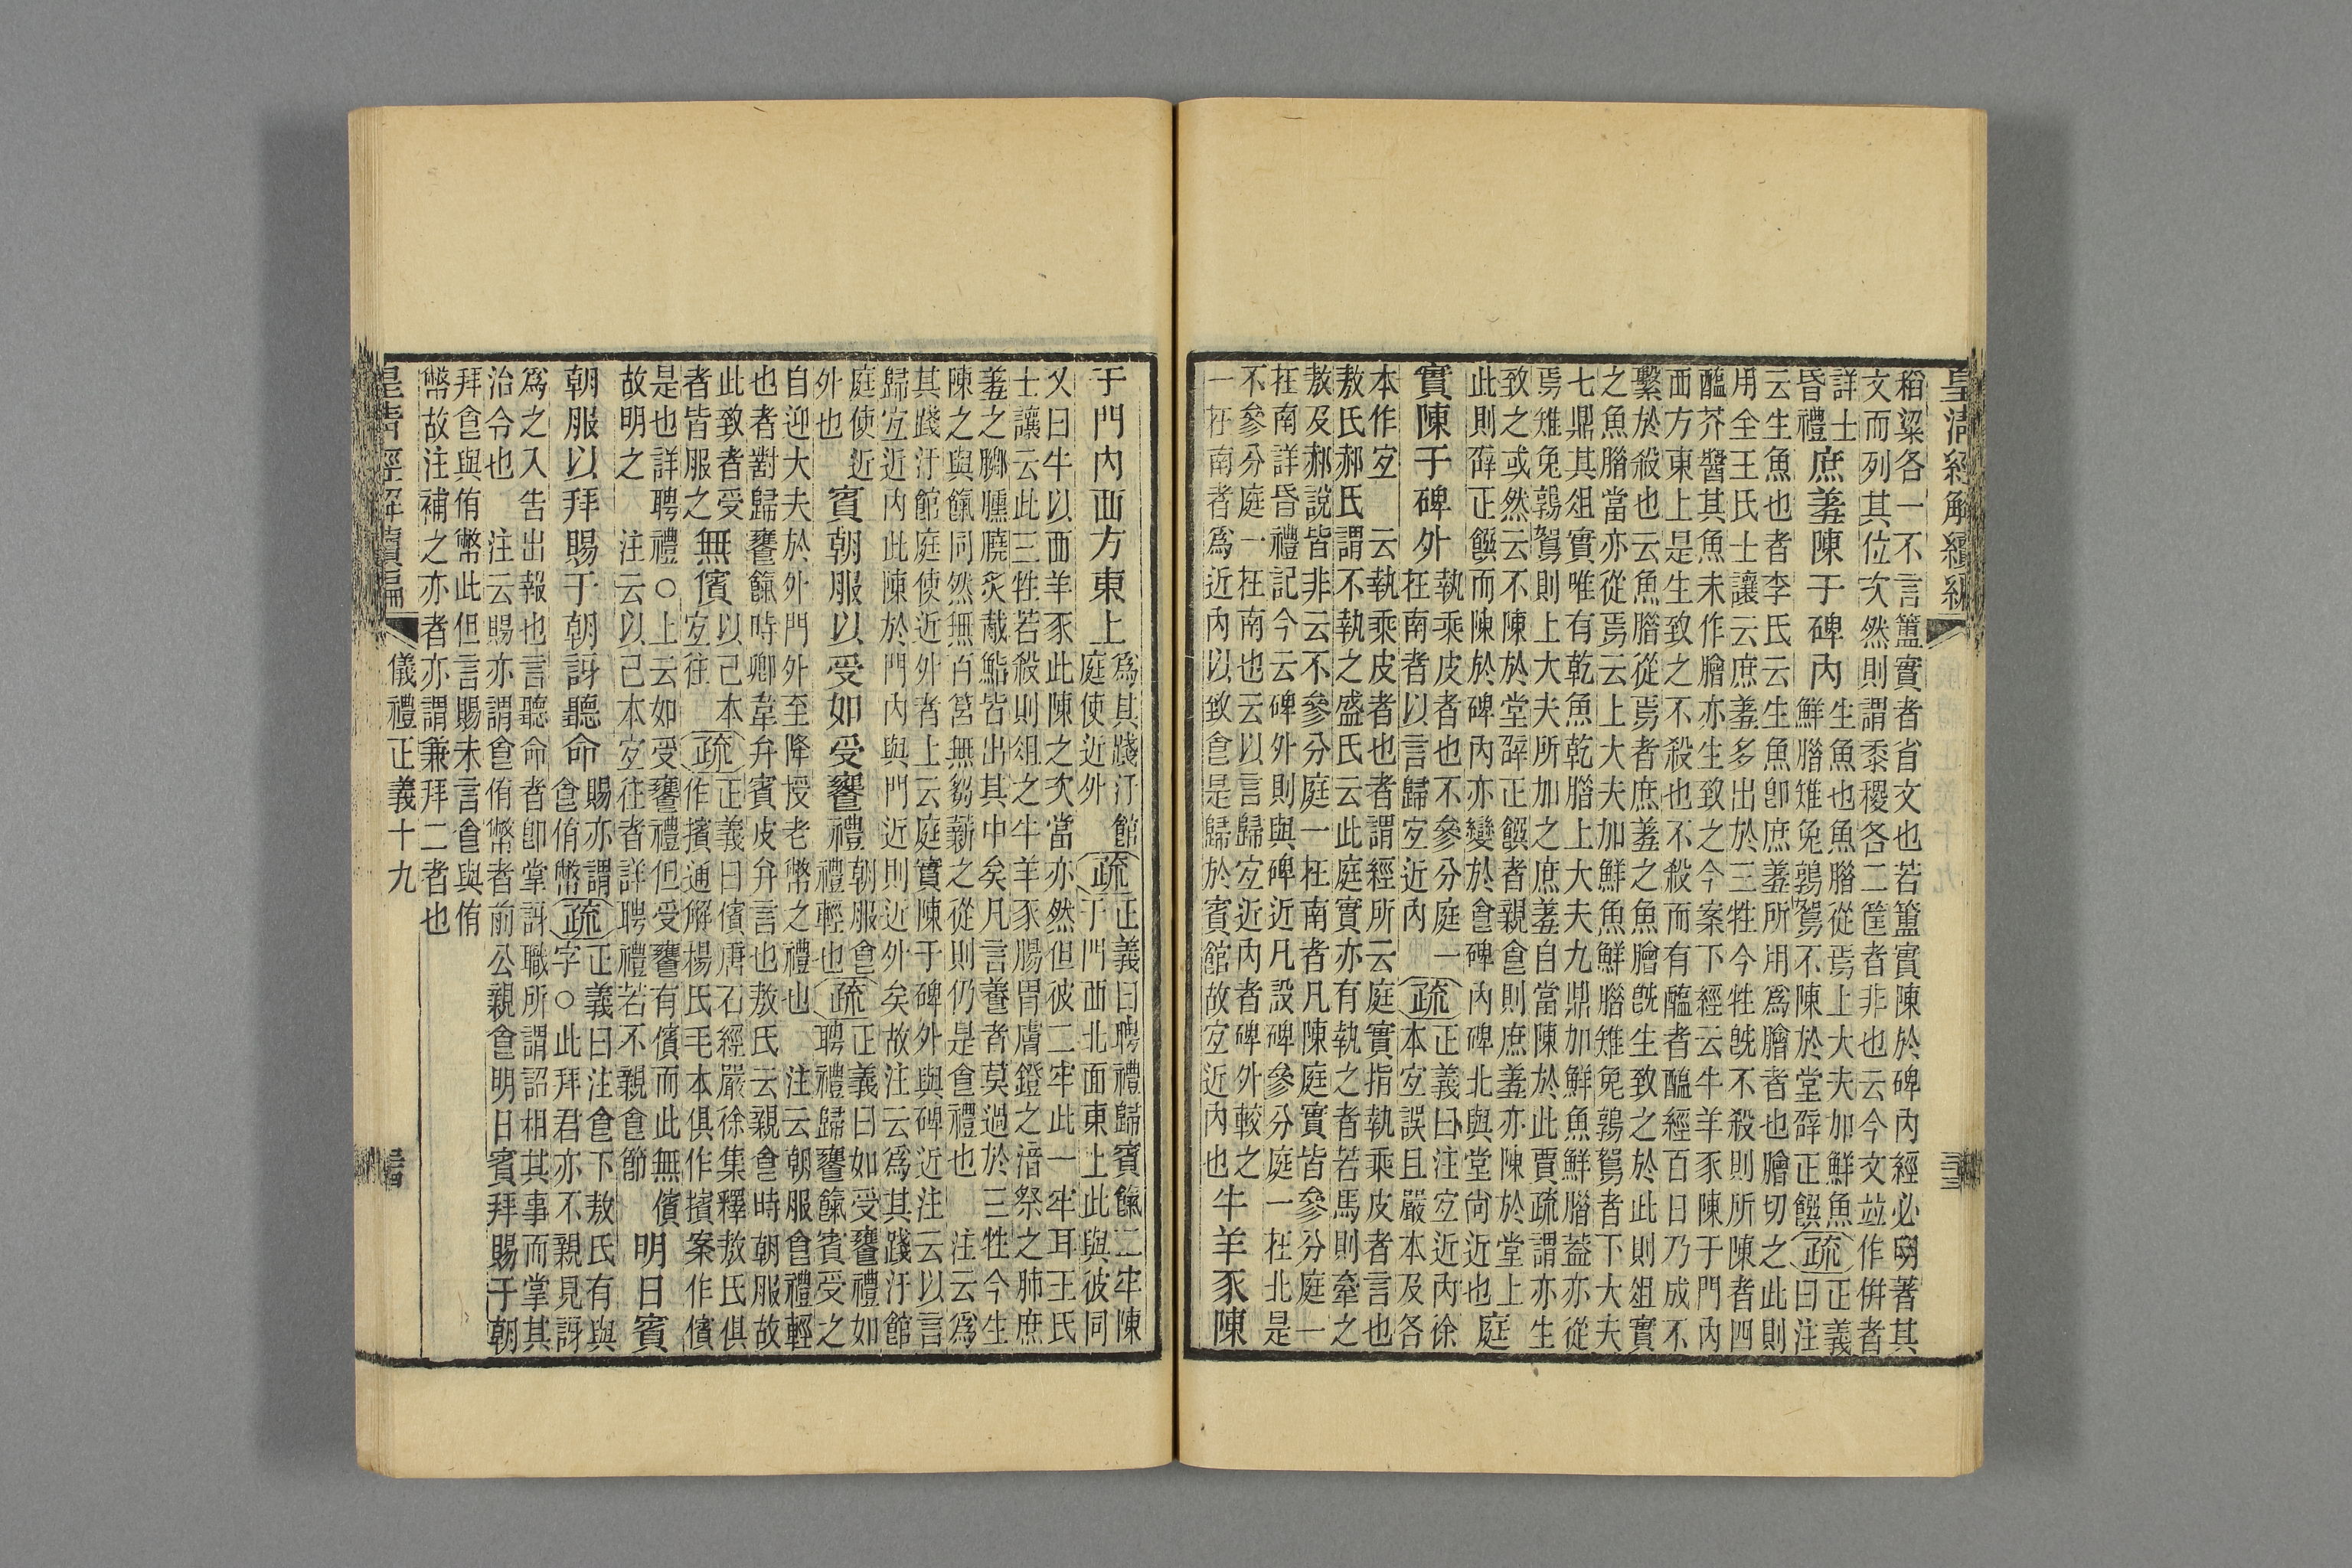 皇清經解續編
稻粱各一不言簠實者省文也若簠實陳於碑內經必明著其
文而列其位次然則謂黍稷各二筐者非也云今文竝作併者
詳士
昏禮
庶羞陳于碑內
生魚也魚腊從焉上大夫加鮮魚
鮮腊雉兔鶉鴽不陳於堂辟正饌
疏
正義
曰注
云生魚也者李氏云生魚卽庶羞所用爲膾者也膾切之此則
用全王氏士讓云庶羞多出於三牲今牲旣不殺則所陳者四
醢芥醬其魚未作膾亦生致之今案下經云牛羊豕陳于門內
西方東上是生致之不殺也不殺而有醢者醢經百日乃成不
繫於殺也云魚腊從焉者庶羞之魚膾旣生致之於此則俎實
之魚腊當亦從焉云上大夫加鮮魚鮮腊雉兔鶉鴽者下大夫
七鼎其俎實唯有乾魚乾腊上大夫九鼎加鮮魚鮮腊蓋亦從
焉雉兔鶉鴽則上大夫所加之庶羞自當陳於此賈疏謂亦生
致之或然云不陳於堂辟正饌者親食則庶羞亦陳於堂上
此則辟正饌而陳於碑內亦變於食碑內碑北與堂尚近也
庭
實陳于碑外
執乘皮者也不參分庭一
在南者以言歸宐近內
疏
正義曰注宐近內徐
本宐誤且嚴本及各
本作宐　云執乘皮者也者謂經所云庭實指執乘皮者言也
敖氏郝氏謂不執之盛氏云此庭實亦有執之者若馬則牽之
敖及郝說皆非云不參分庭一在南者凡陳庭實皆參分庭一
在南詳昏禮記今云碑外則與碑近凡設碑參分庭一在北是
不參分庭一在南也云以言歸宐近內者碑外較之
一在南者爲近內以致食是歸於賓館故宐近內也
牛羊豕陳
于門內西方東上
爲其踐汙館
庭使近外
疏
正義曰聘禮歸賓餼二牢陳
于門西北面東上此與彼同
又曰牛以西羊豕此陳之次當亦然但彼二牢此一牢耳王氏
士讓云此三牲若殺則俎之牛羊豕腸胃膚鐙之湆祭之肺庶
羞之膷臐膮炙胾鮨皆出其中矣凡言養者莫過於三牲今生
陳之與餼同然無百筥無芻薪之從則仍是食禮也　注云爲
其踐汙館庭使近外者上云庭實陳于碑外與碑近注云以言
歸宐近內此陳於門內與門近則近外矣故注云爲其踐汙館
庭使近
外也
賓朝服以受如受饔禮
朝服食
禮輕也
疏
正義曰如受饔禮如
聘禮歸饔餼賓受之
自迎大夫於外門外至降授老幣之禮也　注云朝服食禮輕
也者對歸饔餼時卿韋弁賓皮弁言也敖氏云親食時朝服故
此致者受
者皆服之
無儐
以己本
宐往
疏
正義曰儐唐石經嚴徐集釋敖氏俱
作擯通解楊氏毛本俱作擯案作儐
是也詳聘禮○上云如受饔禮但受饔有儐而此無儐
故明之　注云以己本宐往者詳聘禮若不親食節
明日賓
朝服以拜賜于朝訝聽命
賜亦謂
食侑幣
疏
正義曰注食下敖氏有與
字○此拜君亦不親見訝
爲之入告出報也言聽命者卽掌訝職所謂詔相其事而掌其
治令也　注云賜亦謂食侑幣者前公親食明日賓拜賜于朝
拜食與侑幣此但言賜未言食與侑
幣故注補之亦者亦謂兼拜二者也
皇清經解續編
儀禮正義十九